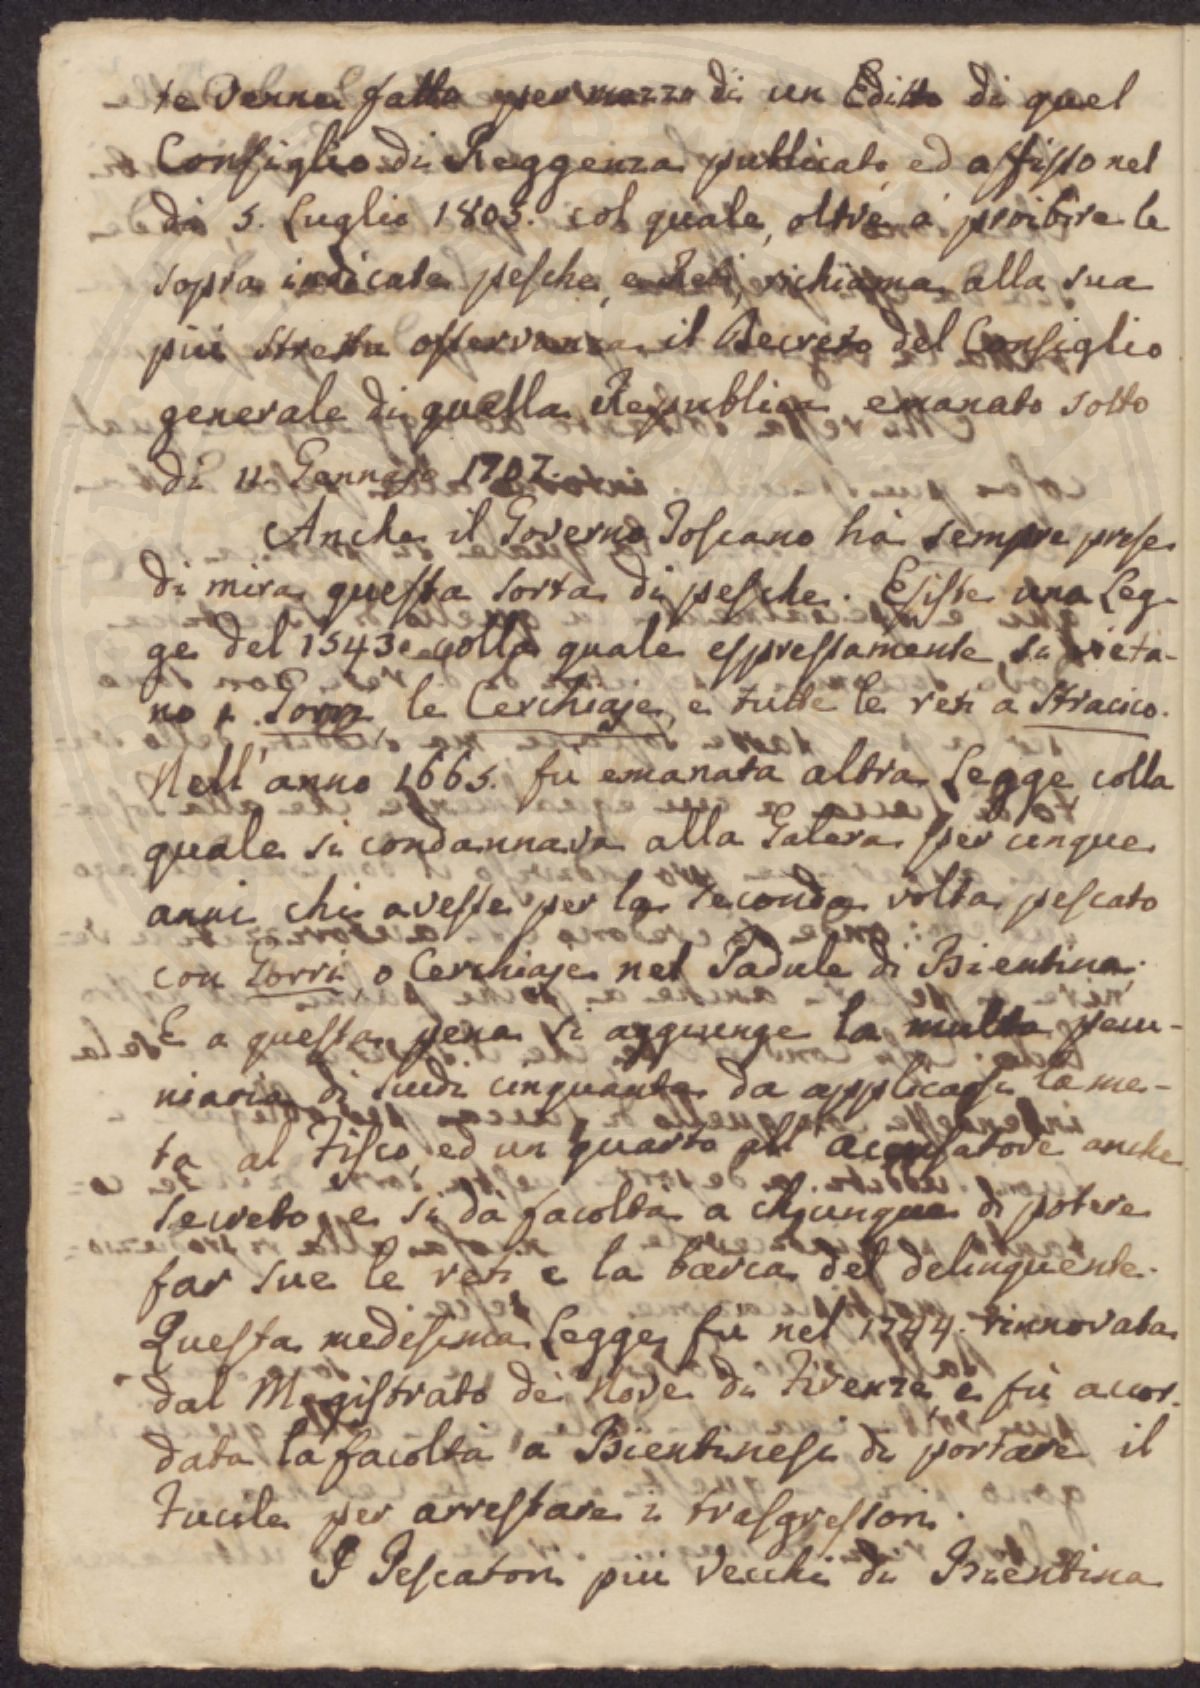 te venne fatto per mezzo di un Editto di quel
Consiglio di Reggenza publicato, ed affisso nel
dì 5. Luglio 1805. col quale, oltre a proibire le
sopra indicate pesche, e Reti, richiama alla sua
più stretta osservanza il Decreto del Consiglio
generale di quella Republica emanato sotto
dì 11. Gennajo 1707.
Anche il Governo Toscano hà sempre prese
di mira questa sorta di pesche. Esiste una Leg-
ge del 1543. colla quale espressamente si vieta-
no i Gorri, le Cerchiaje, e tutte le reti a Stracico.
Nell'anno 1665. fu emanata altra Legge colla
quale si condannava alla Galera per cinque
anni chi avesse per la seconda volta pescato
con Gorri o Cerchiaje nel Padule di Bientina.
E a questa pena si aggiunge la multa pecu-
niaria di Scudi cinquanta da applicarsi la me-
ta al Fisco, ed un quarto all' accusatore anche
secreto, e si dà facoltà a chiunque di potere
far sue le reti e la barca del delinquente.
Questa medesima Legge fu nel 1744. rinnovata
dal Magistrato de' Nove di Firenze, e fù accor-
data la facoltà a Bientinesi di portare il
Fucile per arrestare i trasgressori.
I Pescatori più vecchi di Bientina